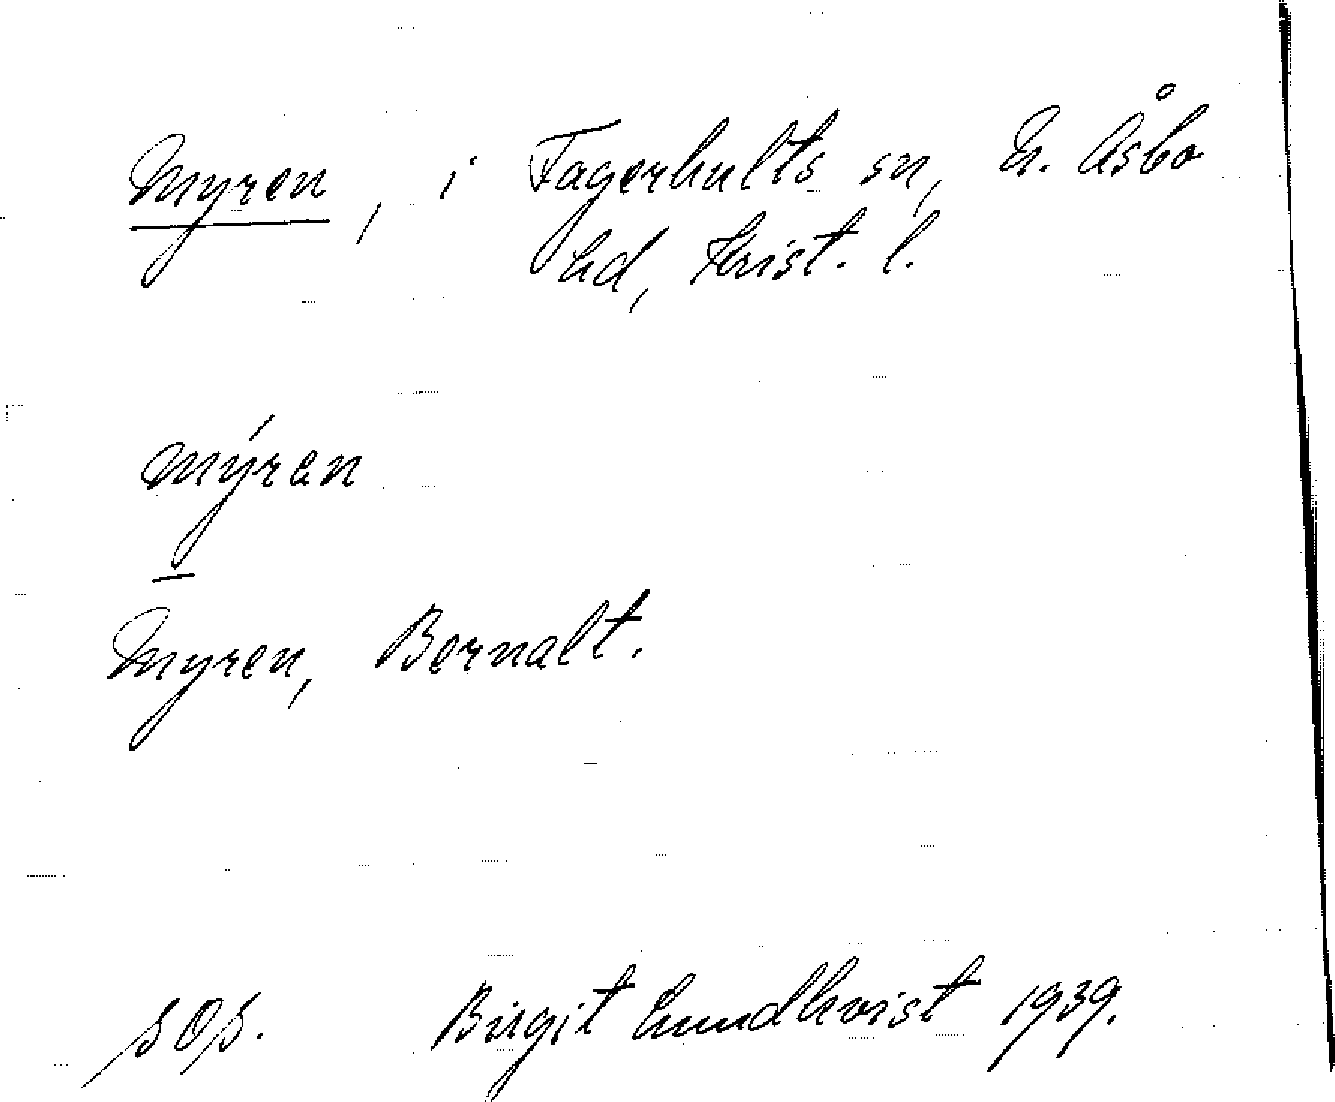 Myren, i Fagerhults sn, N. Åsbo
hd, Krist. l.
mýrən
Myren, Bernalt.
sOs. Birgit Lundkvist 1939.